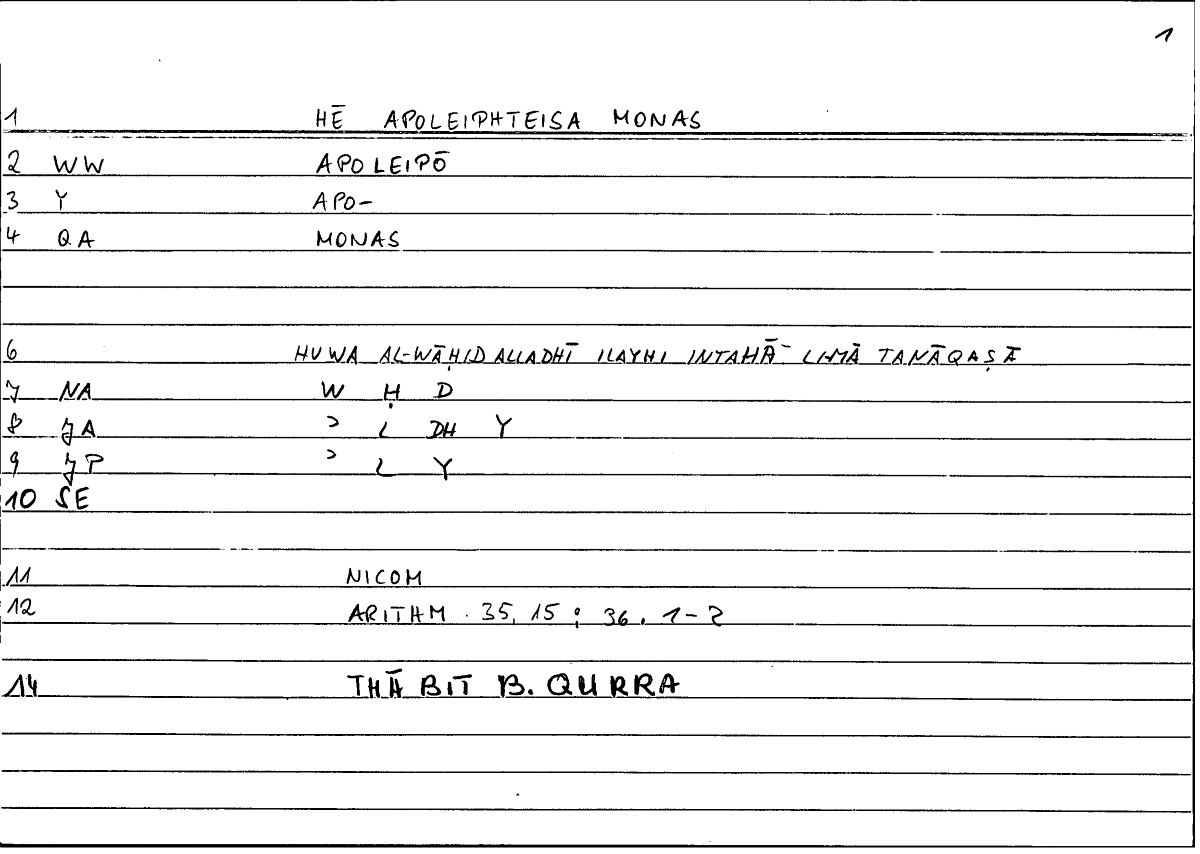 1
1 HĒ APOLEIPHTEISA MONAS
2 WW APOLEIPŌ
3 Y APO-
4 QA MONAS
6 HUWA AL-WĀḤID ALLADHĪ ILAYHI INTAHĀ LIMĀ TANĀQAṢĀ
7 NA W Ḥ D
8 JA ʾ L DH Y
9 JP ʾ L Y
10 SE
11 NICOM
12 ARITHM. 35, 15 ; 36. 1-2
14 THĀBIT B. QURRA